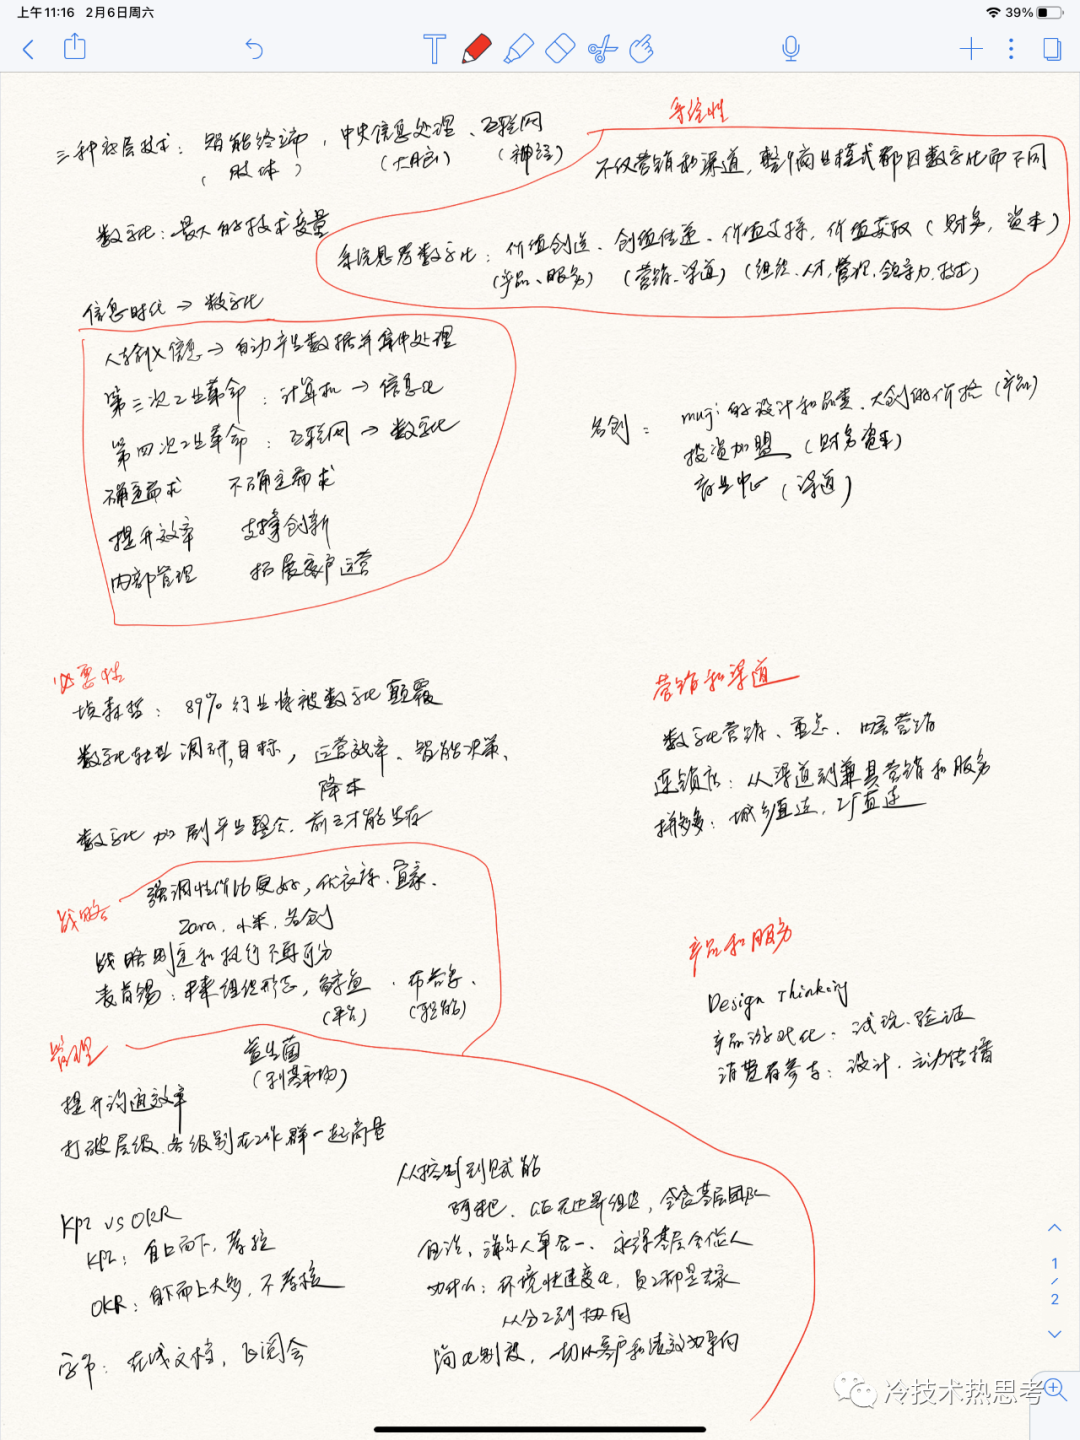 上午11:16 2月6日周六
39%
系统性
三种底层技术：智能终端，中央信息处理、互联网
（肢体）（大脑）（神经）
不仅营销和渠道，整个商业模式都因数字化而不同
数字化：最大的技术变量
系统思考数字化：价值创造、创值传递、价值支持，价值获取（财务，资本）
（产品、服务）（营销、渠道）（组织、人才，管理，领导力，技术）
信息时代→数字化
信息→自动产生数据并集中处理
第三次工业革命：计算机→信息化
第四次工业革命：互联网→数字化
确定需求 不确定需求
提升效率 支撑创新
内部管理 拓展客户运营
名创：muji的设计和品质、大创的价格（产品）
投资加盟（财务资本）
商业中心（渠道）
必要性
埃森哲：89%行业将被数字化颠覆
数字化转型调研，目标，运营效率、智能决策、
降本
数字化加剧平台整合，前三才能生存
营销和渠道
数字化营销、重点、内容营销
连锁店：从渠道到兼具营销和服务
拼多多：城乡直连，工厂直连
战略
强调性价比更好，优衣库、宜家、
Zara、小米、名创
战略制定和执行不再可分
未来组织形态，鲸鱼、布谷鸟、
（平台）
益生菌
（利基市场）
产品和服务
Design Thinking
产品游戏化：试玩、验证
消费者参与：设计、主动传播
管理
提升沟通效率
打破层级、各级别在工作群一起商量
从控制到赋能
阿米巴、GE无边界组织，合弄基层团队
海尔人单合一、永辉基层合伙人
为什么：环境快速变化，员工都是专家
从分工到协同
简化制度，一切以客户和绩效为导向
KPI vs OKR
KPI：自上而下，考核
OKR：自下而上大多，不考核
字节：在线文档，飞阅会
1
/
2
冷技术热思考